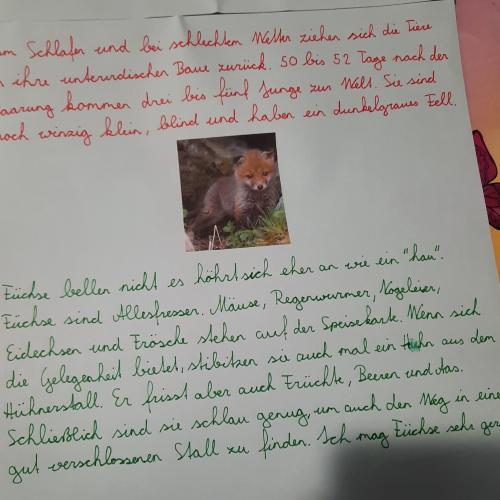 um Schlafen und bei schlechtem Wetter ziehen sich die Tiere
n ihre unterirdischen Baue zurück. 50 bis 52 Tage nach der
aarung kommen drei bis fünf Junge zur Welt. Sie sind
noch winzig klein, blind und haben ein dunkelgraues Fell.
Füchse bellen nicht es höhrt sich eher an wie ein "hau".
Füchse sind Allesfresser. Mäuse, Regenwurmer, Vogeleier,
Eidechsen und Frösche stehen auf der Speisekarte. Wenn sich
die Gelegenheit bietet, stibitzen sie auch mal ein Huhn aus dem
Hühnerstall. Er frisst aber auch Früchte, Beeren und Aas.
Schließlich sind sie schlau genug, um auch den Weg in eine
gut verschlossenen Stall zu finden. Ich mag Füchse sehr ger